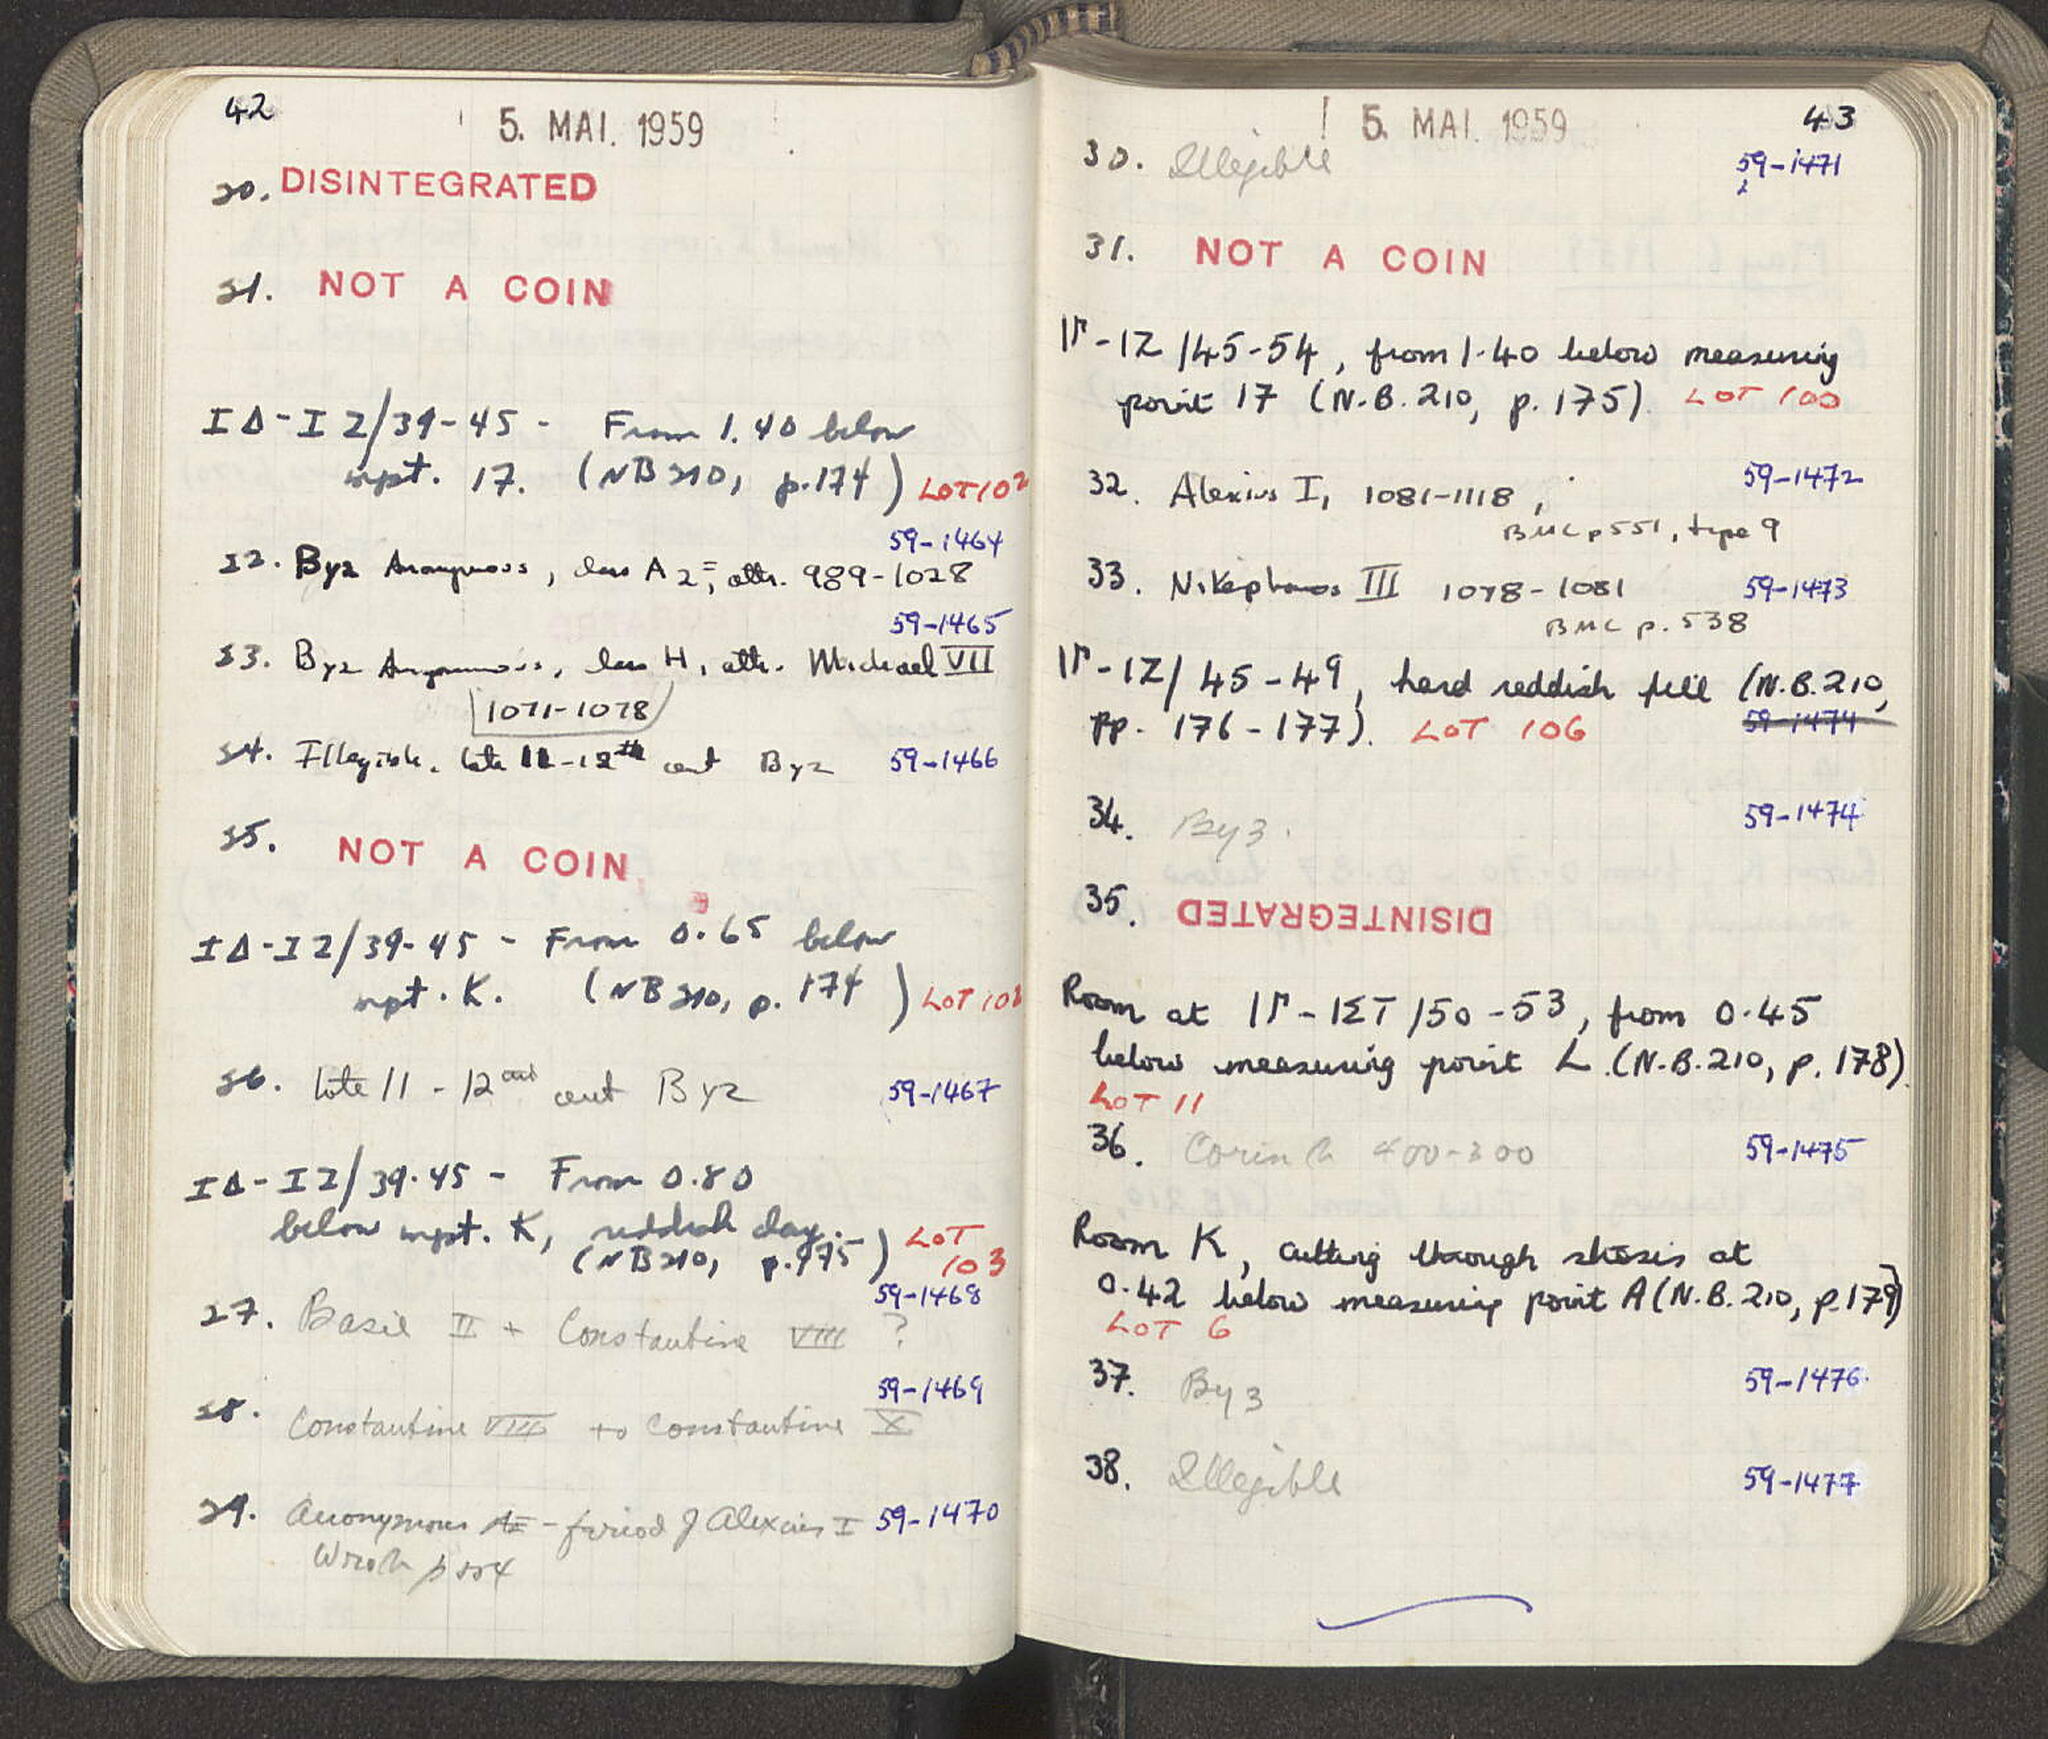 42
5. MAI. 1959
20. DISINTEGRATED
21. NOT A COIN
ΙΔ-ΙΖ/39-45 - From 1.40 below
mpt. 17. (NB 210, p. 174) LOT 102
59-1464
22. Byz Anonymous, class A2=, attr. 989-1028
59-1465
23. Byz Anonymous, class H, attr. Michael VII
1071-1078
24. Illegible. late 11-12th cent Byz 59-1466
25. NOT A COIN
ΙΔ-ΙΖ/39-45 - From 0.65 below
mpt. K. (NB 210, p. 174) LOT 102
26. late 11 - 12 cent Byz 59-1467
ΙΔ-ΙΖ/39-45 - From 0.80
below mpt. K, reddish clay. LOT
(NB 210, p. 175) 103
59-1468
27. Basil II + Constantine VIII ?
59-1469
28. Constantine VIII to Constantine X
29. Anonymous - period of Alexius I 59-1470
Wroth p 554
43
5. MAI. 1959
30. Illegible 59-1471
31. NOT A COIN
ΙΓ-ΙΖ/45-54, from 1.40 below measuring
point 17 (N.B. 210, p. 175). LOT 100
32. Alexius I, 1081-1118, 59-1472
BMC p 551, type 9
33. Nikephoros III 1078-1081 59-1473
BMC p. 538
ΙΓ-ΙΖ/45-49, hard reddish fill (N.B. 210,
pp. 176-177). LOT 106 59-1474
34. Byz. 59-1474
35. DISINTEGRATED
Room at ΙΓ-ΙΣΤ/50-53, from 0.45
below measuring point L. (N.B. 210, p. 178).
LOT 11
36. Corinth 400-300 59-1475
Room K, cutting through stosis at
0.42 below measuring point A (N.B. 210, p. 179)
LOT 6
37. Byz 59-1476
38. Illegible 59-1477